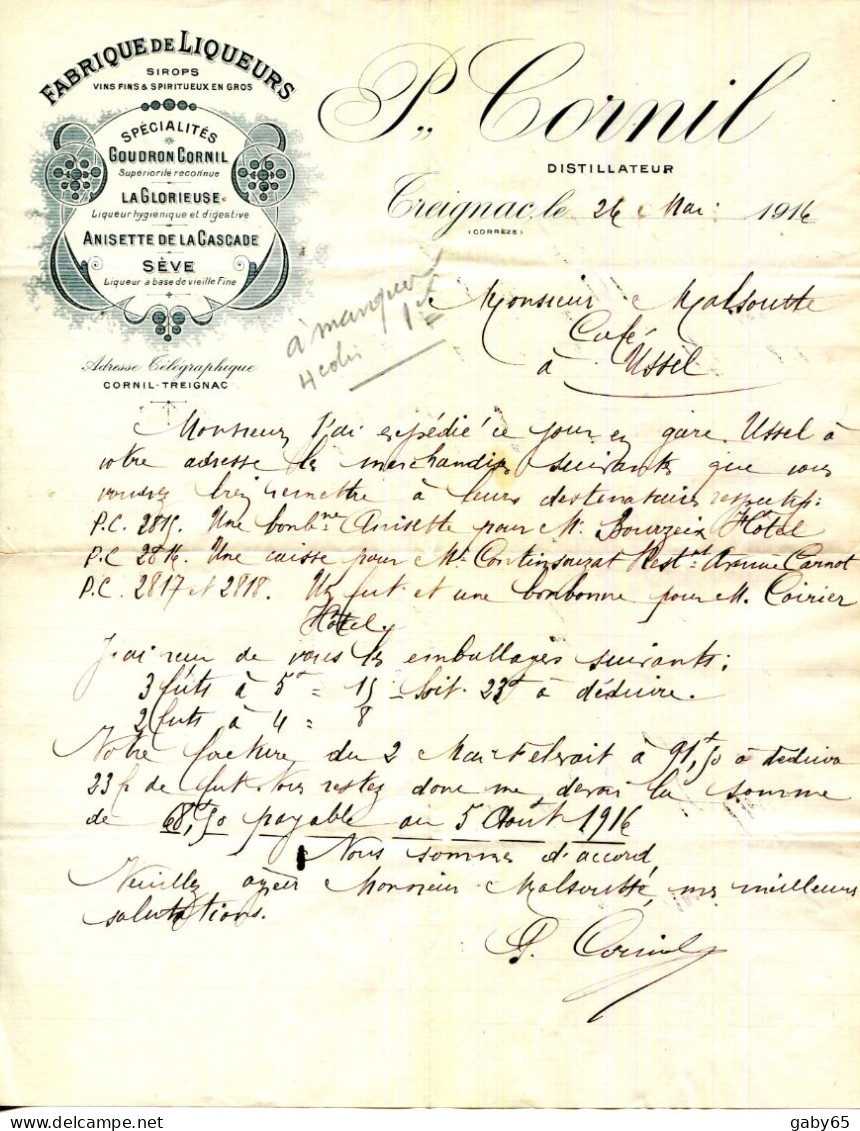 FABRIQUE DE LIQUEURS
SIROPS
VINS FINS & SPIRITUEUX EN GROS
SPÉCIALITÉS
GOUDRON CORNIL
Supériorité reconnue
LA GLORIEUSE
Liqueur hygiènique et digestive
ANISETTE DE LA CASCADE
SÈVE
Liqueur a base de vieille Fine
Adresse Télégraphique
CORNIL-TREIGNAC
P. Cornil
DISTILLATEUR
Treignac, le 26 Mai 1916
(CORRÈZE)
à manquer
4 colis
Monsieur Malsoutte
Café
à Ussel
Monsieur, J'ai expédié ce jour en gare Ussel à
votre adresse les marchandises suivantes que vous
voudrez bien remettre à leurs destinataires respectifs:
P.C. 2815. Une bonbne Anisette pour Mr Bourzeix Hôtel
P.C 2816. Une caisse pour Mr Continsouzat Restnt Avenue Carnot
P.C. 2817 et 2818. Un fut et une bonbonne pour M. Coirier
Hôtel
J'ai reçu de vous les emballages suivants:
3 fûts à 5f = 15 soit 23f à déduire.
2 futs à 4 = 8
Notre facture du 2 Mai élevait à 91f,50 à déduire
23f de fut. Vous restez donc me devoir la somme
de 68f,50 payable au 5 Août 1916
Nous sommes d'accord
Veuillez agréer Monsieur Malsoutte, mes meilleures
salutations.
P. Cornil
gaby65